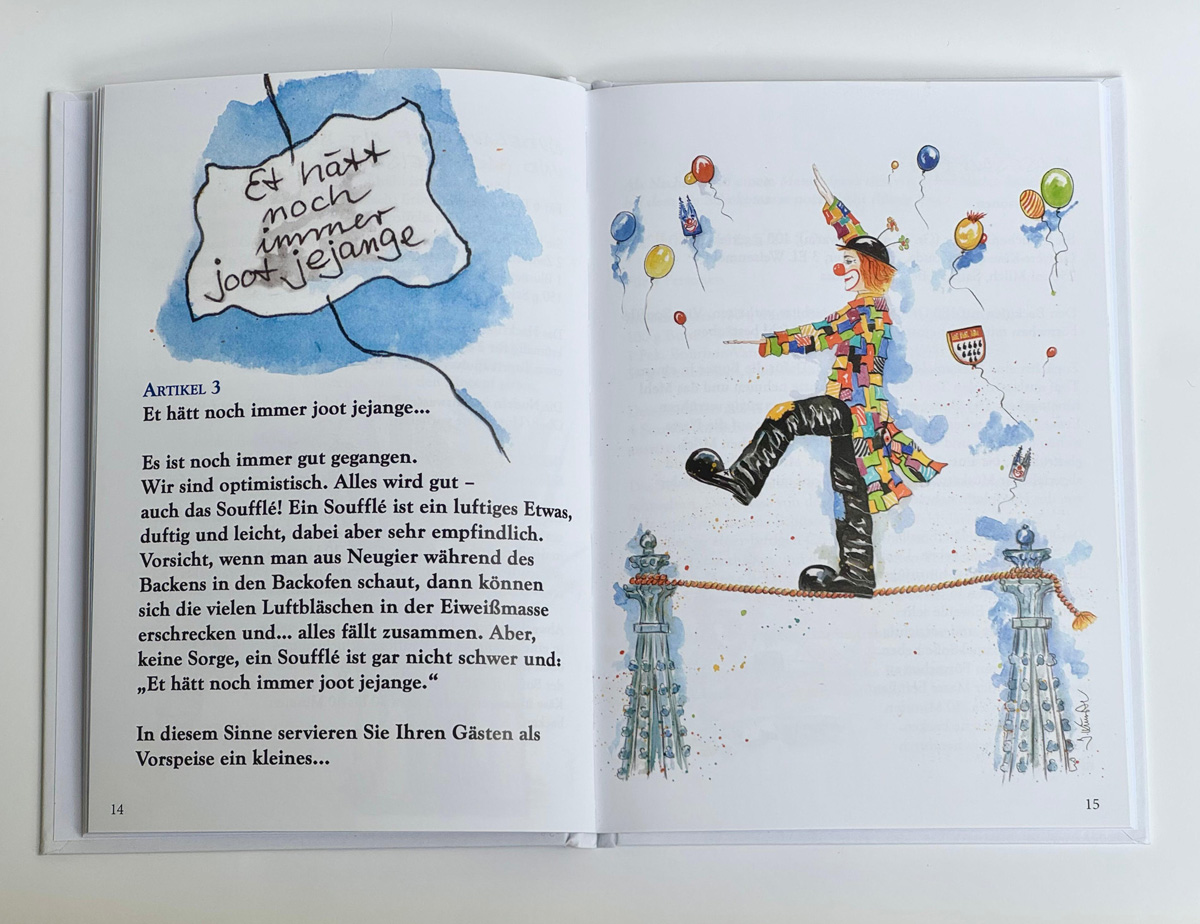 Et hätt
noch
immer
joot jejange
ARTIKEL 3
Et hätt noch immer joot jejange...
Es ist noch immer gut gegangen.
Wir sind optimistisch. Alles wird gut –
auch das Soufflé! Ein Soufflé ist ein luftiges Etwas,
duftig und leicht, dabei aber sehr empfindlich.
Vorsicht, wenn man aus Neugier während des
Backens in den Backofen schaut, dann können
sich die vielen Luftbläschen in der Eiweißmasse
erschrecken und... alles fällt zusammen. Aber,
keine Sorge, ein Soufflé ist gar nicht schwer und:
„Et hätt noch immer joot jejange.“
In diesem Sinne servieren Sie Ihren Gästen als
Vorspeise ein kleines...
14
15